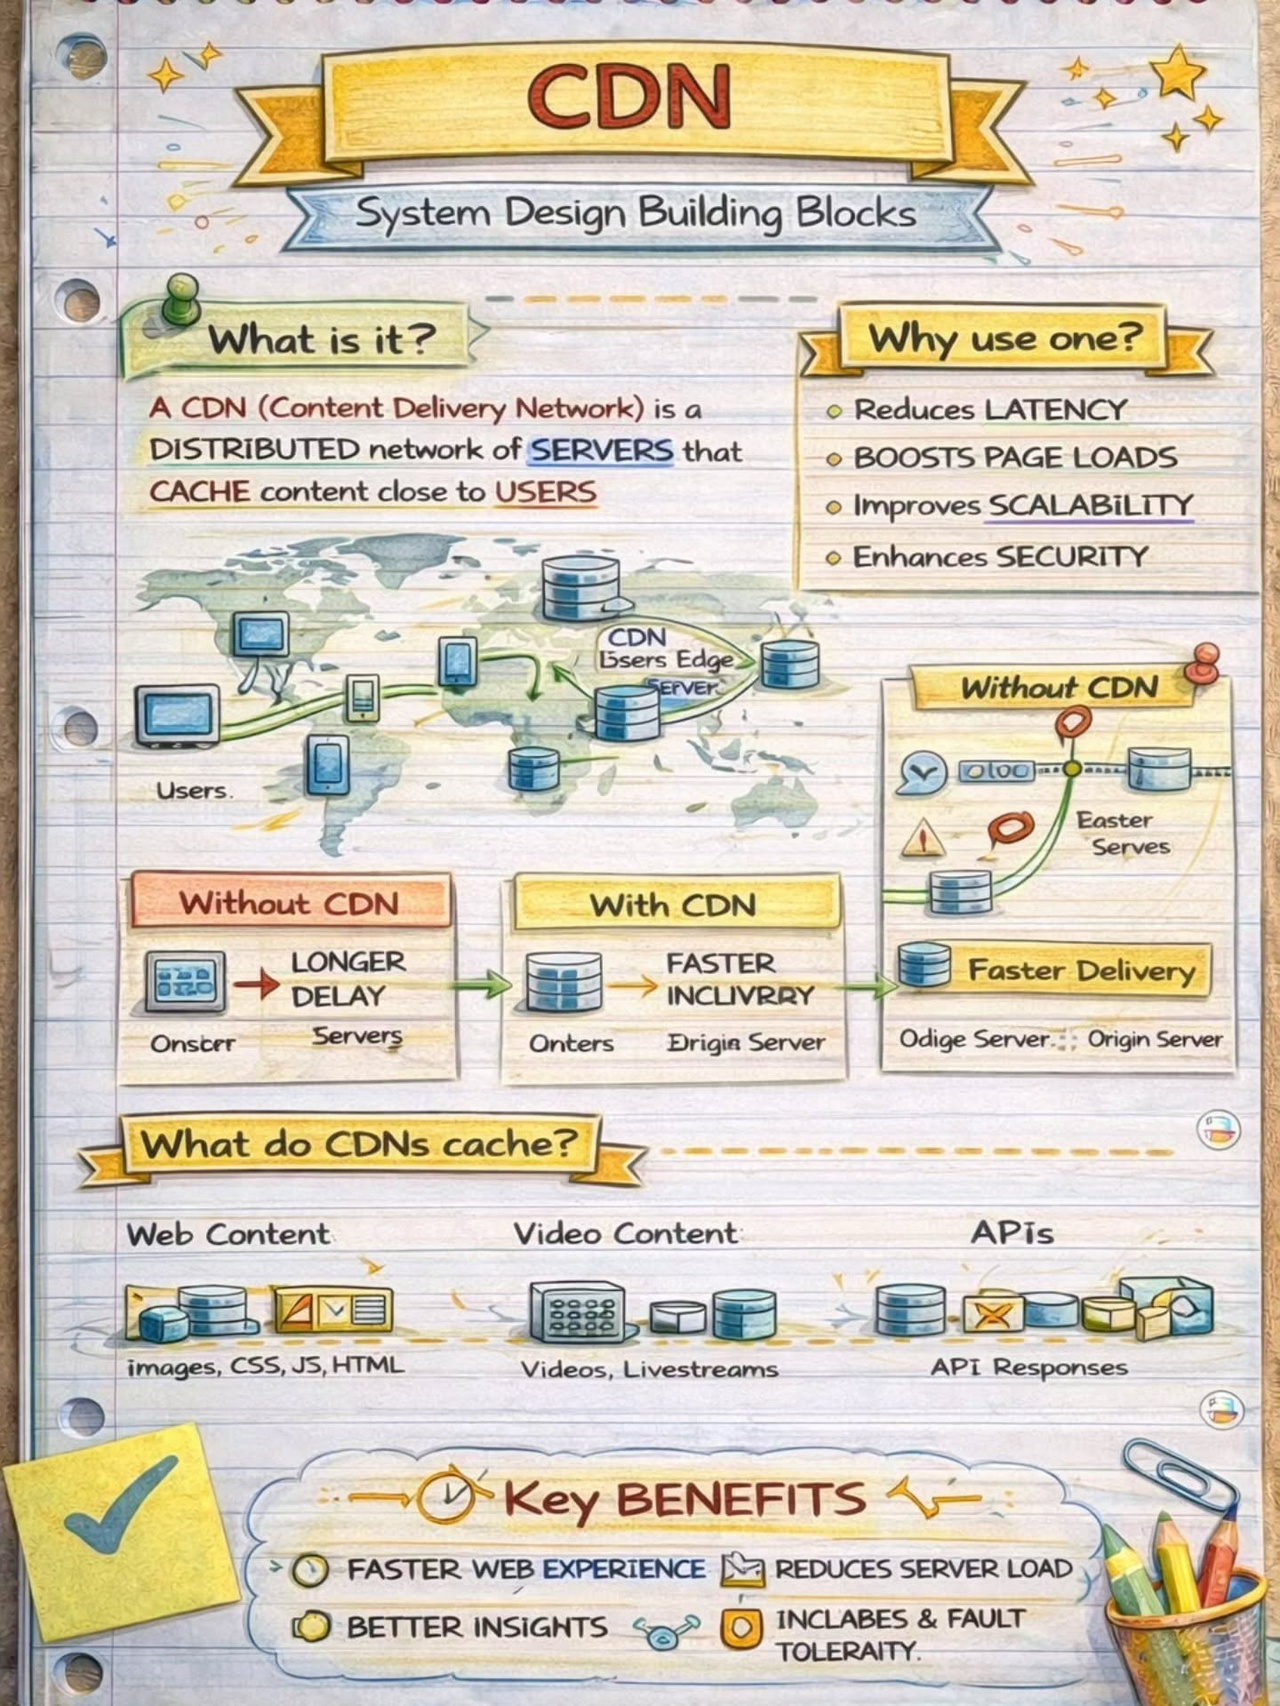 CDN
System Design Building Blocks
What is it?
A CDN (Content Delivery Network) is a
DISTRIBUTED network of SERVERS that
CACHE content close to USERS
Why use one?
Reduces LATENCY
BOOSTS PAGE LOADS
Improves SCALABILITY
Enhances SECURITY
CDN
Edge
SERVER
Users.
Without CDN
Easter
Serves
Faster Delivery
Odige Server
Origin Server
Without CDN
LONGER
DELAY
Servers
With CDN
FASTER
INCLIVRRY
Onters
Server
What do CDNs cache?
Web Content
images, CSS, JS, HTML
Video Content
Videos, Livestreams
APIs
API Responses
Key BENEFITS
FASTER WEB EXPERIENCE
REDUCES SERVER LOAD
BETTER INSIGHTS
INCLABES & FAULT
TOLERAITY.